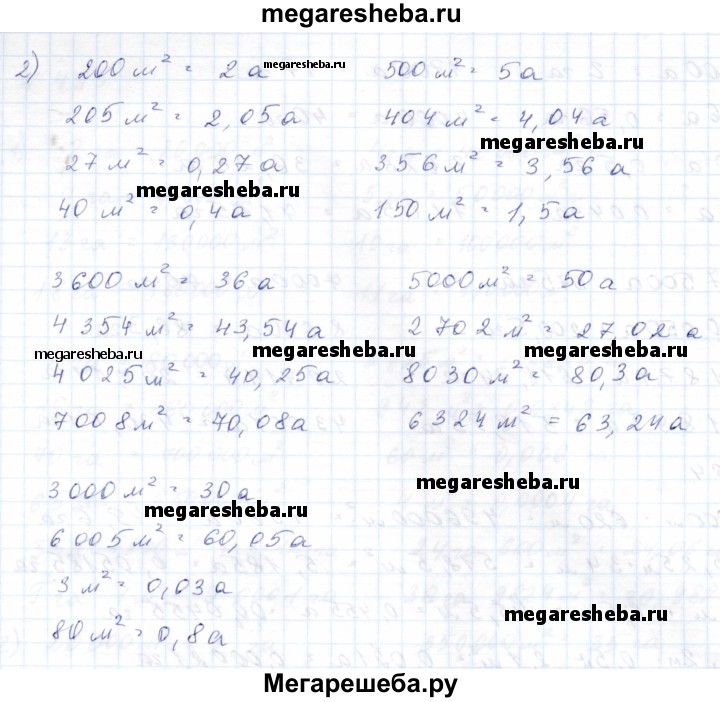 megaresheba.ru
2) 200 м² = 2 а megaresheba.ru 500 м² = 5а
205 м² = 2,05а 404 м² = 4,04 а
megaresheba.ru
27 м² = 0,27а 356 м² = 3,56 а
megaresheba.ru
40 м² = 0,4а 150 м² = 1,5а
3600 м² = 36а 5000 м² = 50а
4354 м² = 43,54а 2702 м² = 27,02 а
megaresheba.ru megaresheba.ru megaresheba.ru
4025 м² = 40,25а 8030 м² = 80,3а
7008 м² = 70,08а 6324 м² = 63,24а
megaresheba.ru
3000 м² = 30а
megaresheba.ru
6005 м² = 60,05а
3 м² = 0,03а
megaresheba.ru
80 м² = 0,8а
Мегарешеба.ру